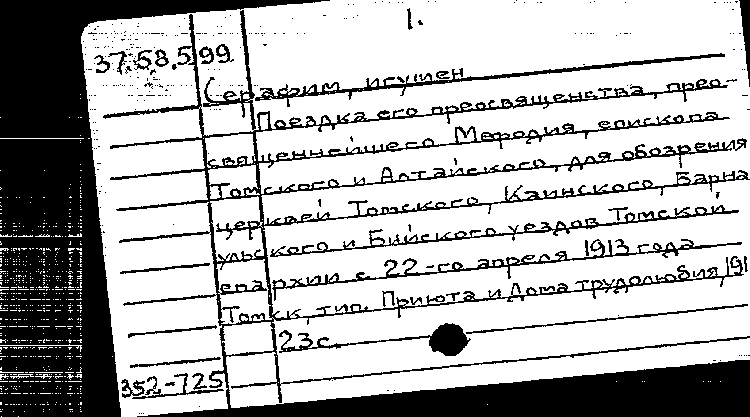 1.
37.58.5.99
Серафим, игумен
Поездка его преосвященства, прео-
священнейшего Мефодия, епископа
Томского и Алтайского, для обозрения
церквей Томского, Каинского, Барна
ульского и Бийского уездов Томской
епархии с 22-го апреля 1913 года
Томск, тип. Приюта и Дома трудолюбия, 191
23с.
352-725